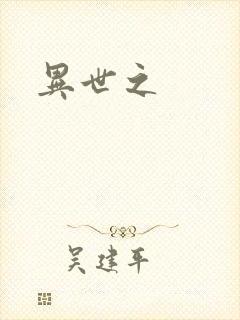 異世之
吴建平